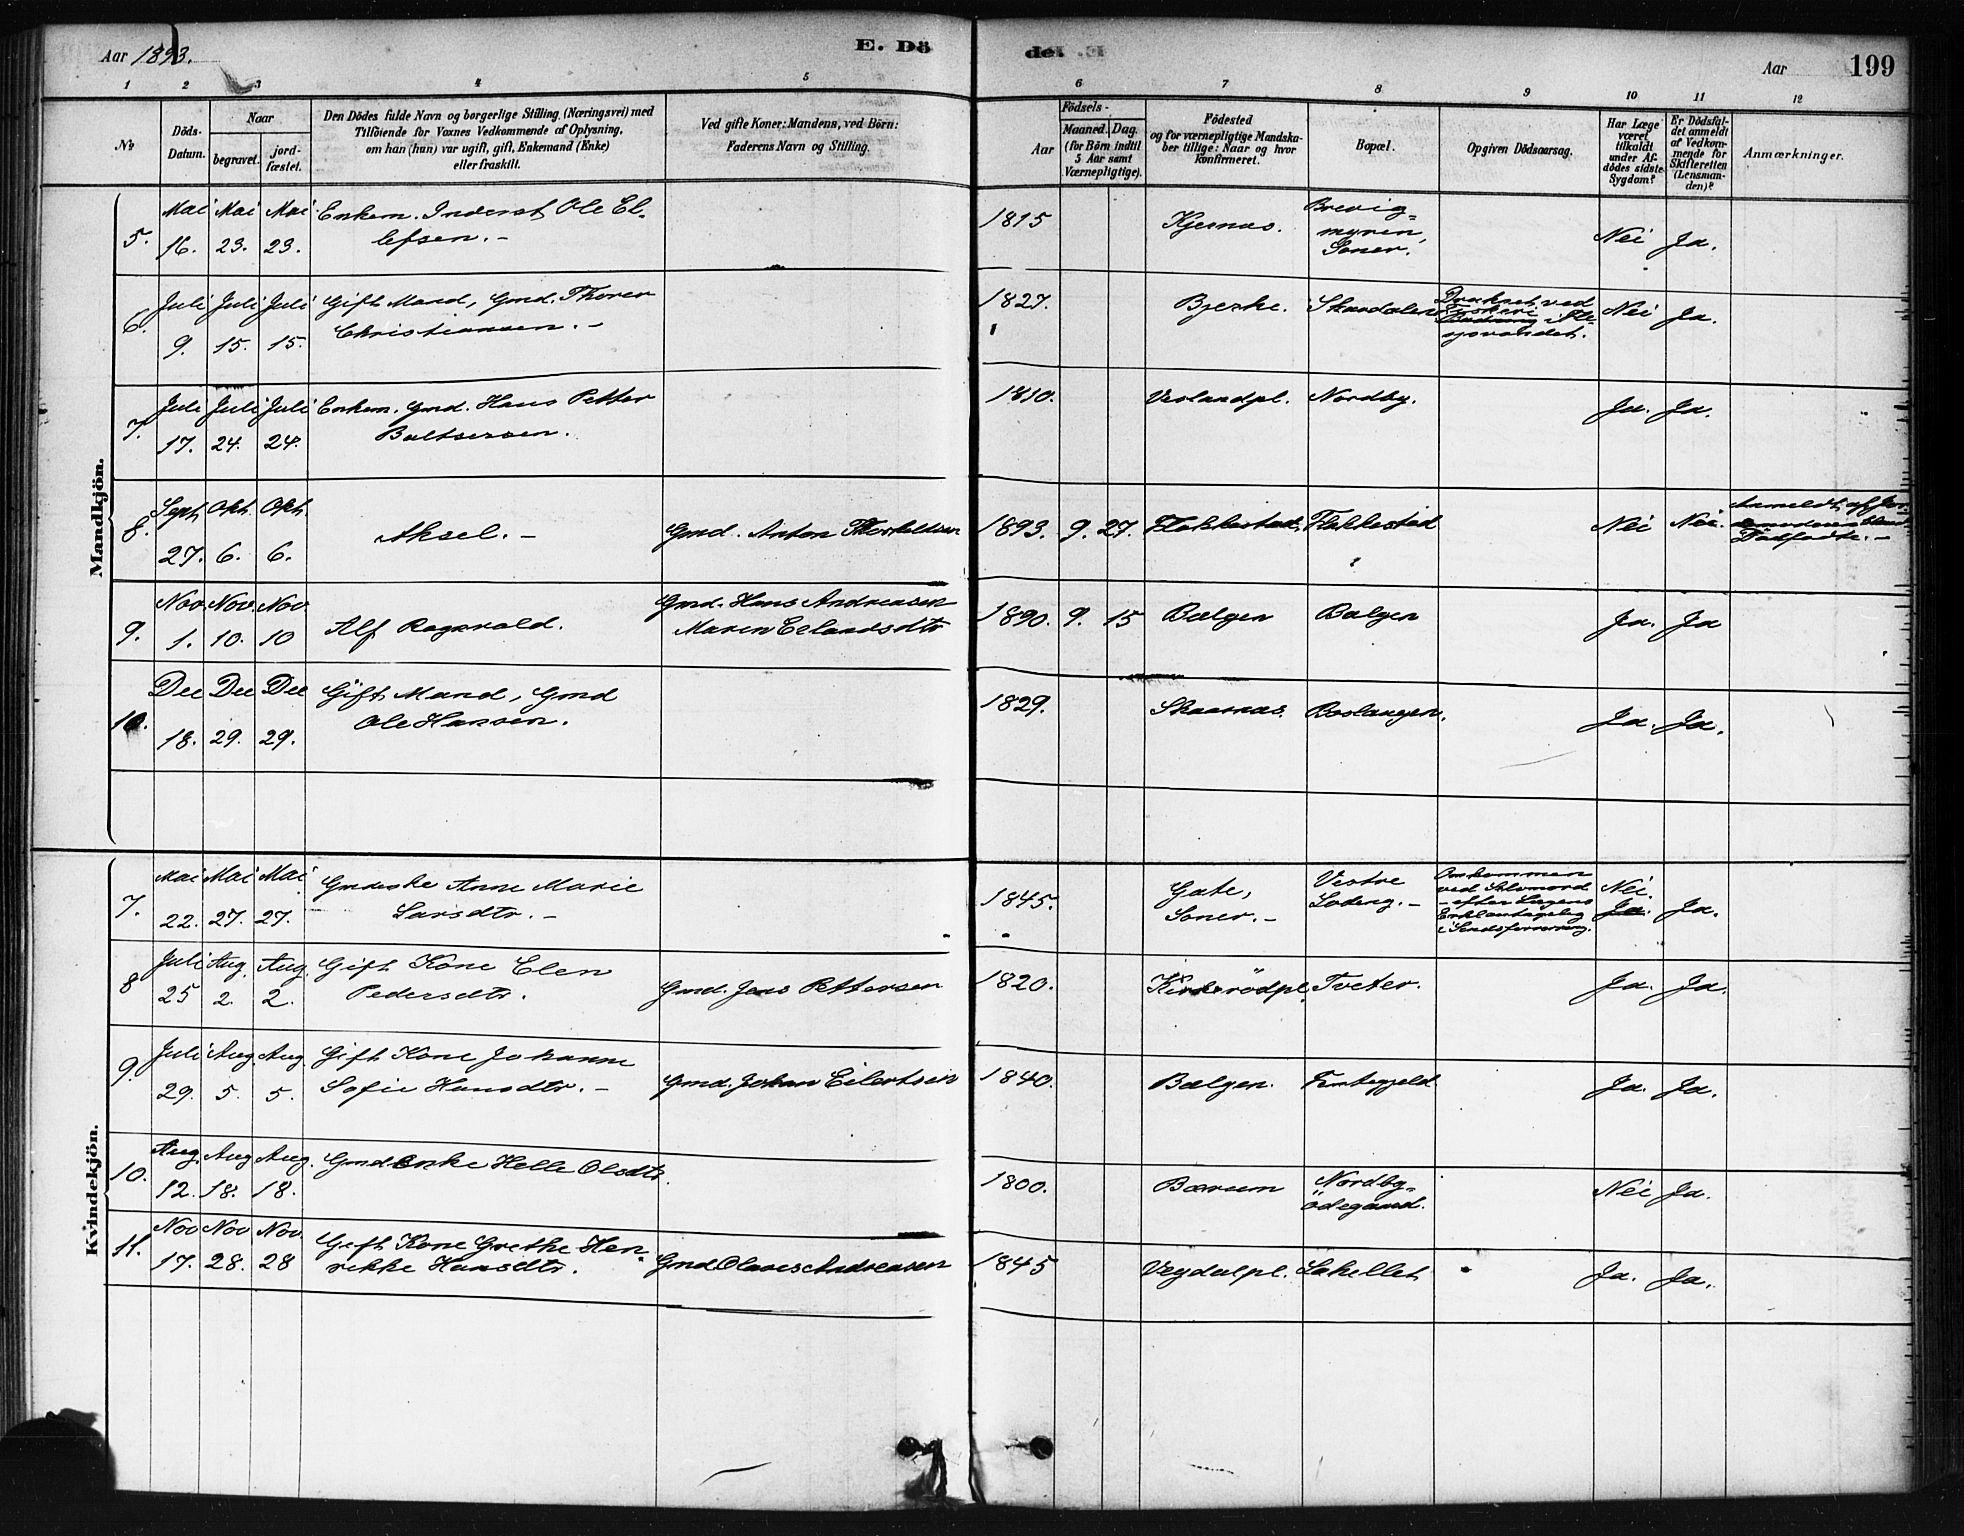 Aar 1893.
E. Dö
de.
Aar
199
1 2 3 4 5 6 7 8 9 10 11 12
No
Döds-Datum.
Naar
begravet.
jord-fæstet.
Den Dödes fulde Navn og borgerlige Stilling (Næringsvei) med
Tilföiende for Voxnes Vedkommende af Oplysning,
om han (hun) var ugift, gift, Enkemand (Enke)
eller fraskilt.
Ved gifte Koner: Mandens, ved Börn:
Faderens Navn og Stilling.
Födsels-
Aar
Maaned. Dag.
(for Börn indtil
5 Aar samt
Værnepligtige).
Födested
og for værnepligtige Mandska-
ber tillige: Naar og hvor
Konfirmeret.
Bopæl.
Opgiven Dödsaarsag.
Har Læge
været
tilkaldt
under Af-
dödes sidste
Sygdom?
Er Dödsfal-
det anmeldt
af Vedkom-
mende for
Skifteretten
(Lensman-
den)?
Anmærkninger.
Mandkjön.
5. Mai 16. Mai 23. Mai 23. Enkem. Inderst Ole El-
lefsen. - 1815 Kjernes. Brevig=
myren,
Soner. Nei Ja.
6. Juli 9. Juli 15. Juli 15. Gift Mand, Gmd. Thorer
Christiansen. - 1827. Bjerke. Skovdalen Druknet ved
Fiskeri
Nei Ja.
7. Juli 17. Juli 24. Juli 24. Enkem. Gmd. Hans Petter
Baltsersen. 1810. Veslandpl. Nordby. Ja. Ja.
8. Sept 27. Okt 6. Okt 6. Aksel. - Gmd. Anton 1893. 9. 27. Flakkestad Flakkestad Nei Nei. Anmeldt af Jor-
demoderen blandt
Dödfödte. -
9. Nov. 1. Nov. 10. Nov 10 Alf Ragnvald. Gmd. Hans Andreasen
Maren Erlandsdtr 1890. 9. 15 Bølgen Bølgen Ja. Ja
10. Dec 18. Dec 29. Dec 29. Gift Mand, Gmd
Ole Hansen. 1829. Skaanas. Boslangen. Ja. Ja.
Kvindekjön.
7. Mai 22. Mai 27. Mai 27. Gmdenke Anne Marie
Larsdtr. - 1845. Gate,
Soner. - Vestre
Lodeng. - Omkommen
ved Selvmord
- efter Lægens
Erkl. antagelig
i Sindsforvirring. Nei.
Ja. Ja.
8 Juli 25 Aug. 2. Aug. 2. Gift Kone Elen
Pedersdtr. Gmd. Jens Pettersen 1820. Kirkerödpl. Tveter. Ja. Ja.
9. Juli 29. Aug. 5. Aug. 5. Gift Kone Johanne
Sofie Hansdtr. - Gmd. Johan Eilertsen 1840. Bølgen. Ja. Ja.
10. Aug. 12. Aug 18. Aug. 18. Gmdenke Helle Olsdtr. 1800. Bærum Nordby=
ödegaard. Nei Ja.
11. Nov 17. Nov 28. Nov. 28 Gift Kone Grethe Hen
rikke Hansdtr. Gmd Olaves Andreasen 1845 Vegdalpl. Ja. Ja.